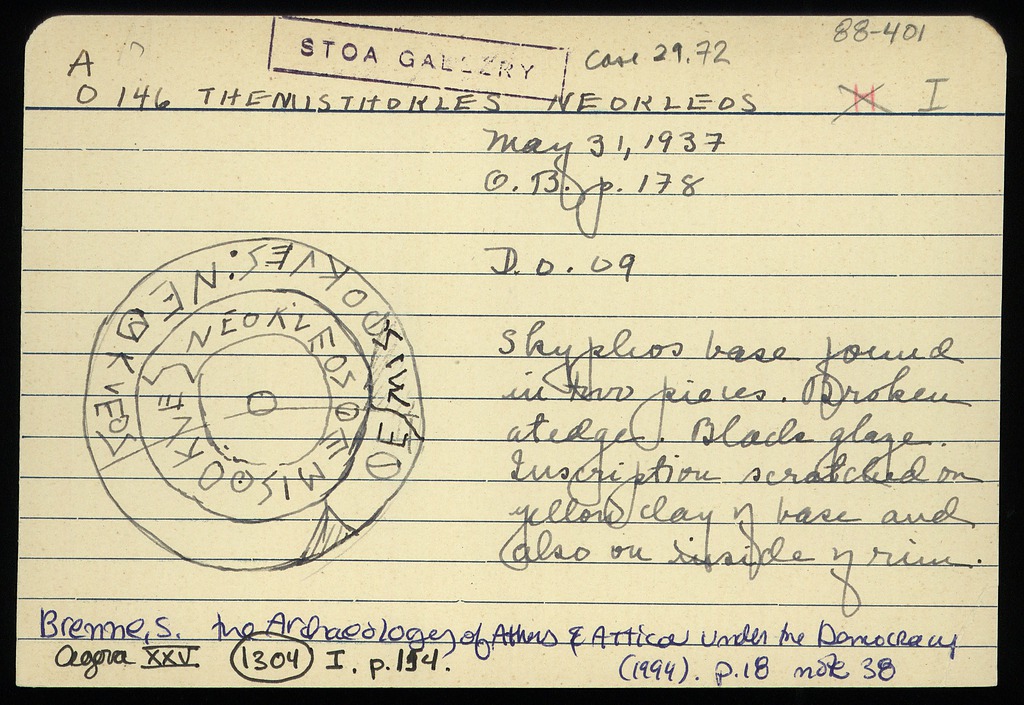 88-401
STOA GALLERY
Case 29.72
A
O 146 THEMISTHOKLES NEOKLEOS I
May 31, 1937
O. B. p. 178
D. O. 09
Skyphos base found
in two pieces. Broken
at edge. Black glaze.
Inscription scratched on
yellow clay of base and
also on inside of rim.
NEOKLEOS
Brenne, S. The Archaeology of Athens & Attica under the Democracy
(1994). p.18 note 38
Agora XXV 1304 I. p.114.